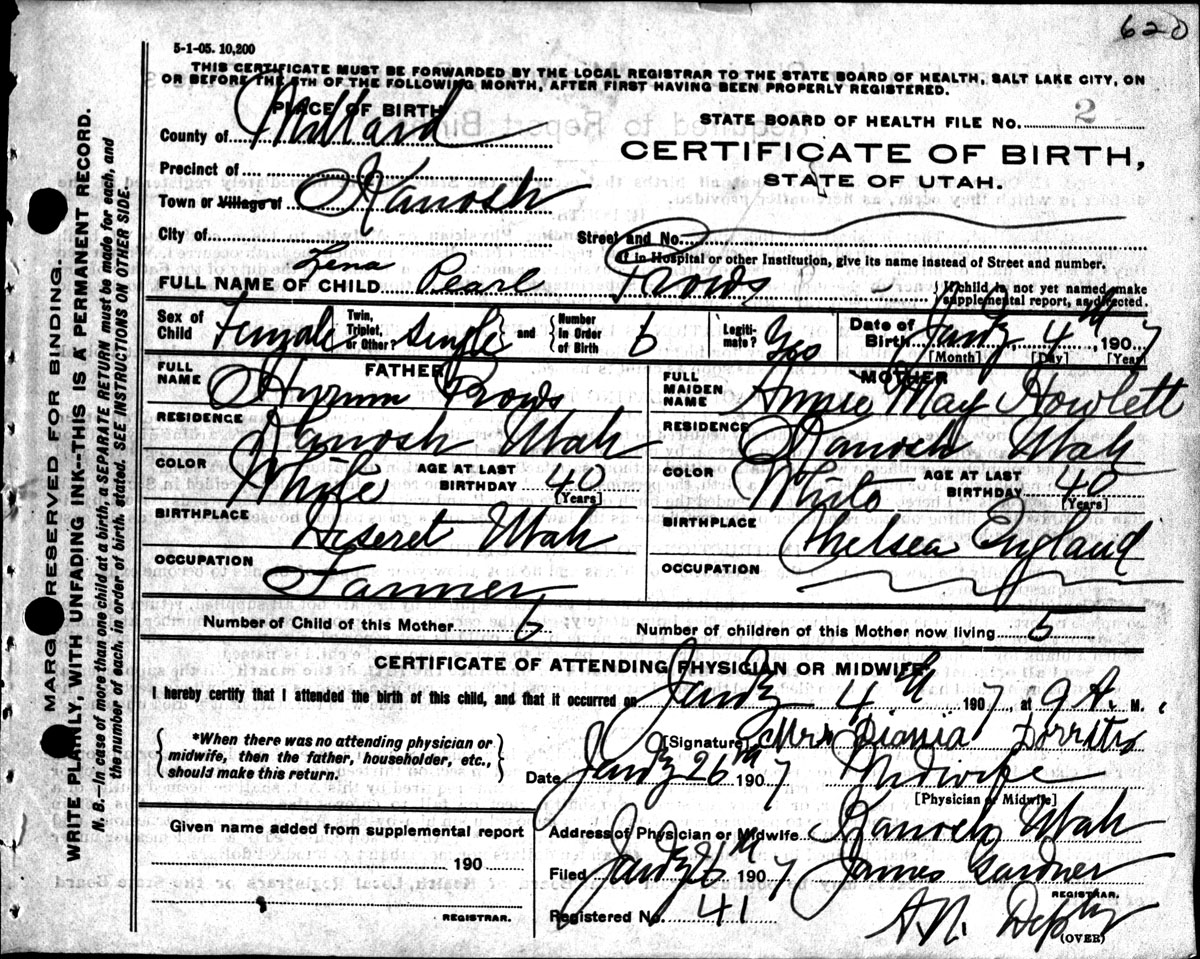 620
5-1-05. 10,200
THIS CERTIFICATE MUST BE FORWARDED BY THE LOCAL REGISTRAR TO THE STATE BOARD OF HEALTH, SALT LAKE CITY, ON
OR BEFORE THE 5TH OF THE FOLLOWING MONTH, AFTER FIRST HAVING BEEN PROPERLY REGISTERED.
PLACE OF BIRTH
County of Millard
STATE BOARD OF HEALTH FILE NO. 2
CERTIFICATE OF BIRTH,
STATE OF UTAH.
Precinct of
Town or Village of Kanosh
City of
Street and No.
If in Hospital or other Institution, give its name instead of Street and number.
FULL NAME OF CHILD Zena Pearl Prows
If child is not yet named, make supplemental report, as directed.
Sex of Child Female Twin, Triplet, or Other? Single and Number In Order of Birth 6 Legitimate? Yes Date of Birth Jany 4th, 1907
[Month] [Day] [Year]
FATHER
MOTHER
FULL NAME Hyrum Prows
FULL MAIDEN NAME Annie May Howlett
RESIDENCE Kanosh Utah
RESIDENCE Kanosh Utah
COLOR White AGE AT LAST BIRTHDAY 40 [Years]
COLOR White AGE AT LAST BIRTHDAY 40 [Years]
BIRTHPLACE Deseret Utah
BIRTHPLACE Chelsea England
OCCUPATION Farmer
OCCUPATION
Number of Child of this Mother 6 Number of children of this Mother now living 5
CERTIFICATE OF ATTENDING PHYSICIAN OR MIDWIFE
I hereby certify that I attended the birth of this child, and that it occurred on Jany 4th 1907, at 9 A. M.
*When there was no attending physician or midwife, then the father, householder, etc., should make this return.
[Signature] Mrs
Date Jany 26th 1907 Midwife
[Physician or Midwife]
Given name added from supplemental report
190
REGISTRAR.
Address of Physician or Midwife Kanosh Utah
Filed Jany 26th 1907 James Gardner
REGISTRAR.
Registered No. 41
(OVER)
MARGIN RESERVED FOR BINDING.
WRITE PLAINLY, WITH UNFADING INK—THIS IS A PERMANENT RECORD.
N. B.—In case of more than one child at a birth, a SEPARATE RETURN must be made for each, and
the number of each, in order of birth, stated. SEE INSTRUCTIONS ON OTHER SIDE.